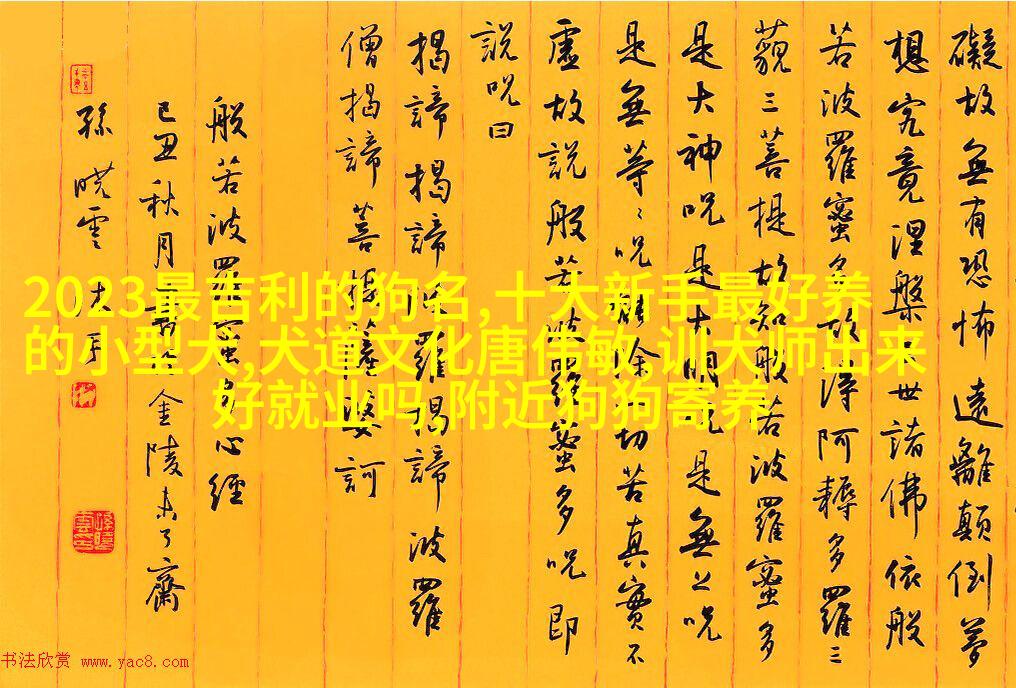 礙故無有恐怖遠離顛倒夢
想究竟涅槃三世諸佛依般
若波羅蜜多故得阿耨多羅三
藐三菩提故知般若波羅蜜多
是大神呪是大明呪是無上呪
是無等〻呪能除一切苦真實不
虛故説般若波羅蜜多呪即
説呪曰
揭諦揭諦波羅揭諦波羅
僧揭諦菩提薩婆訶
般若波羅蜜多心經
己丑秋月金陵未了齋
孫曉雲
2023最吉利的狗名,十大新手最好养
的小型犬,犬道文化唐伟敏,训犬师出来
好就业吗,附近狗狗寄养
书法欣赏 www.yac8.com